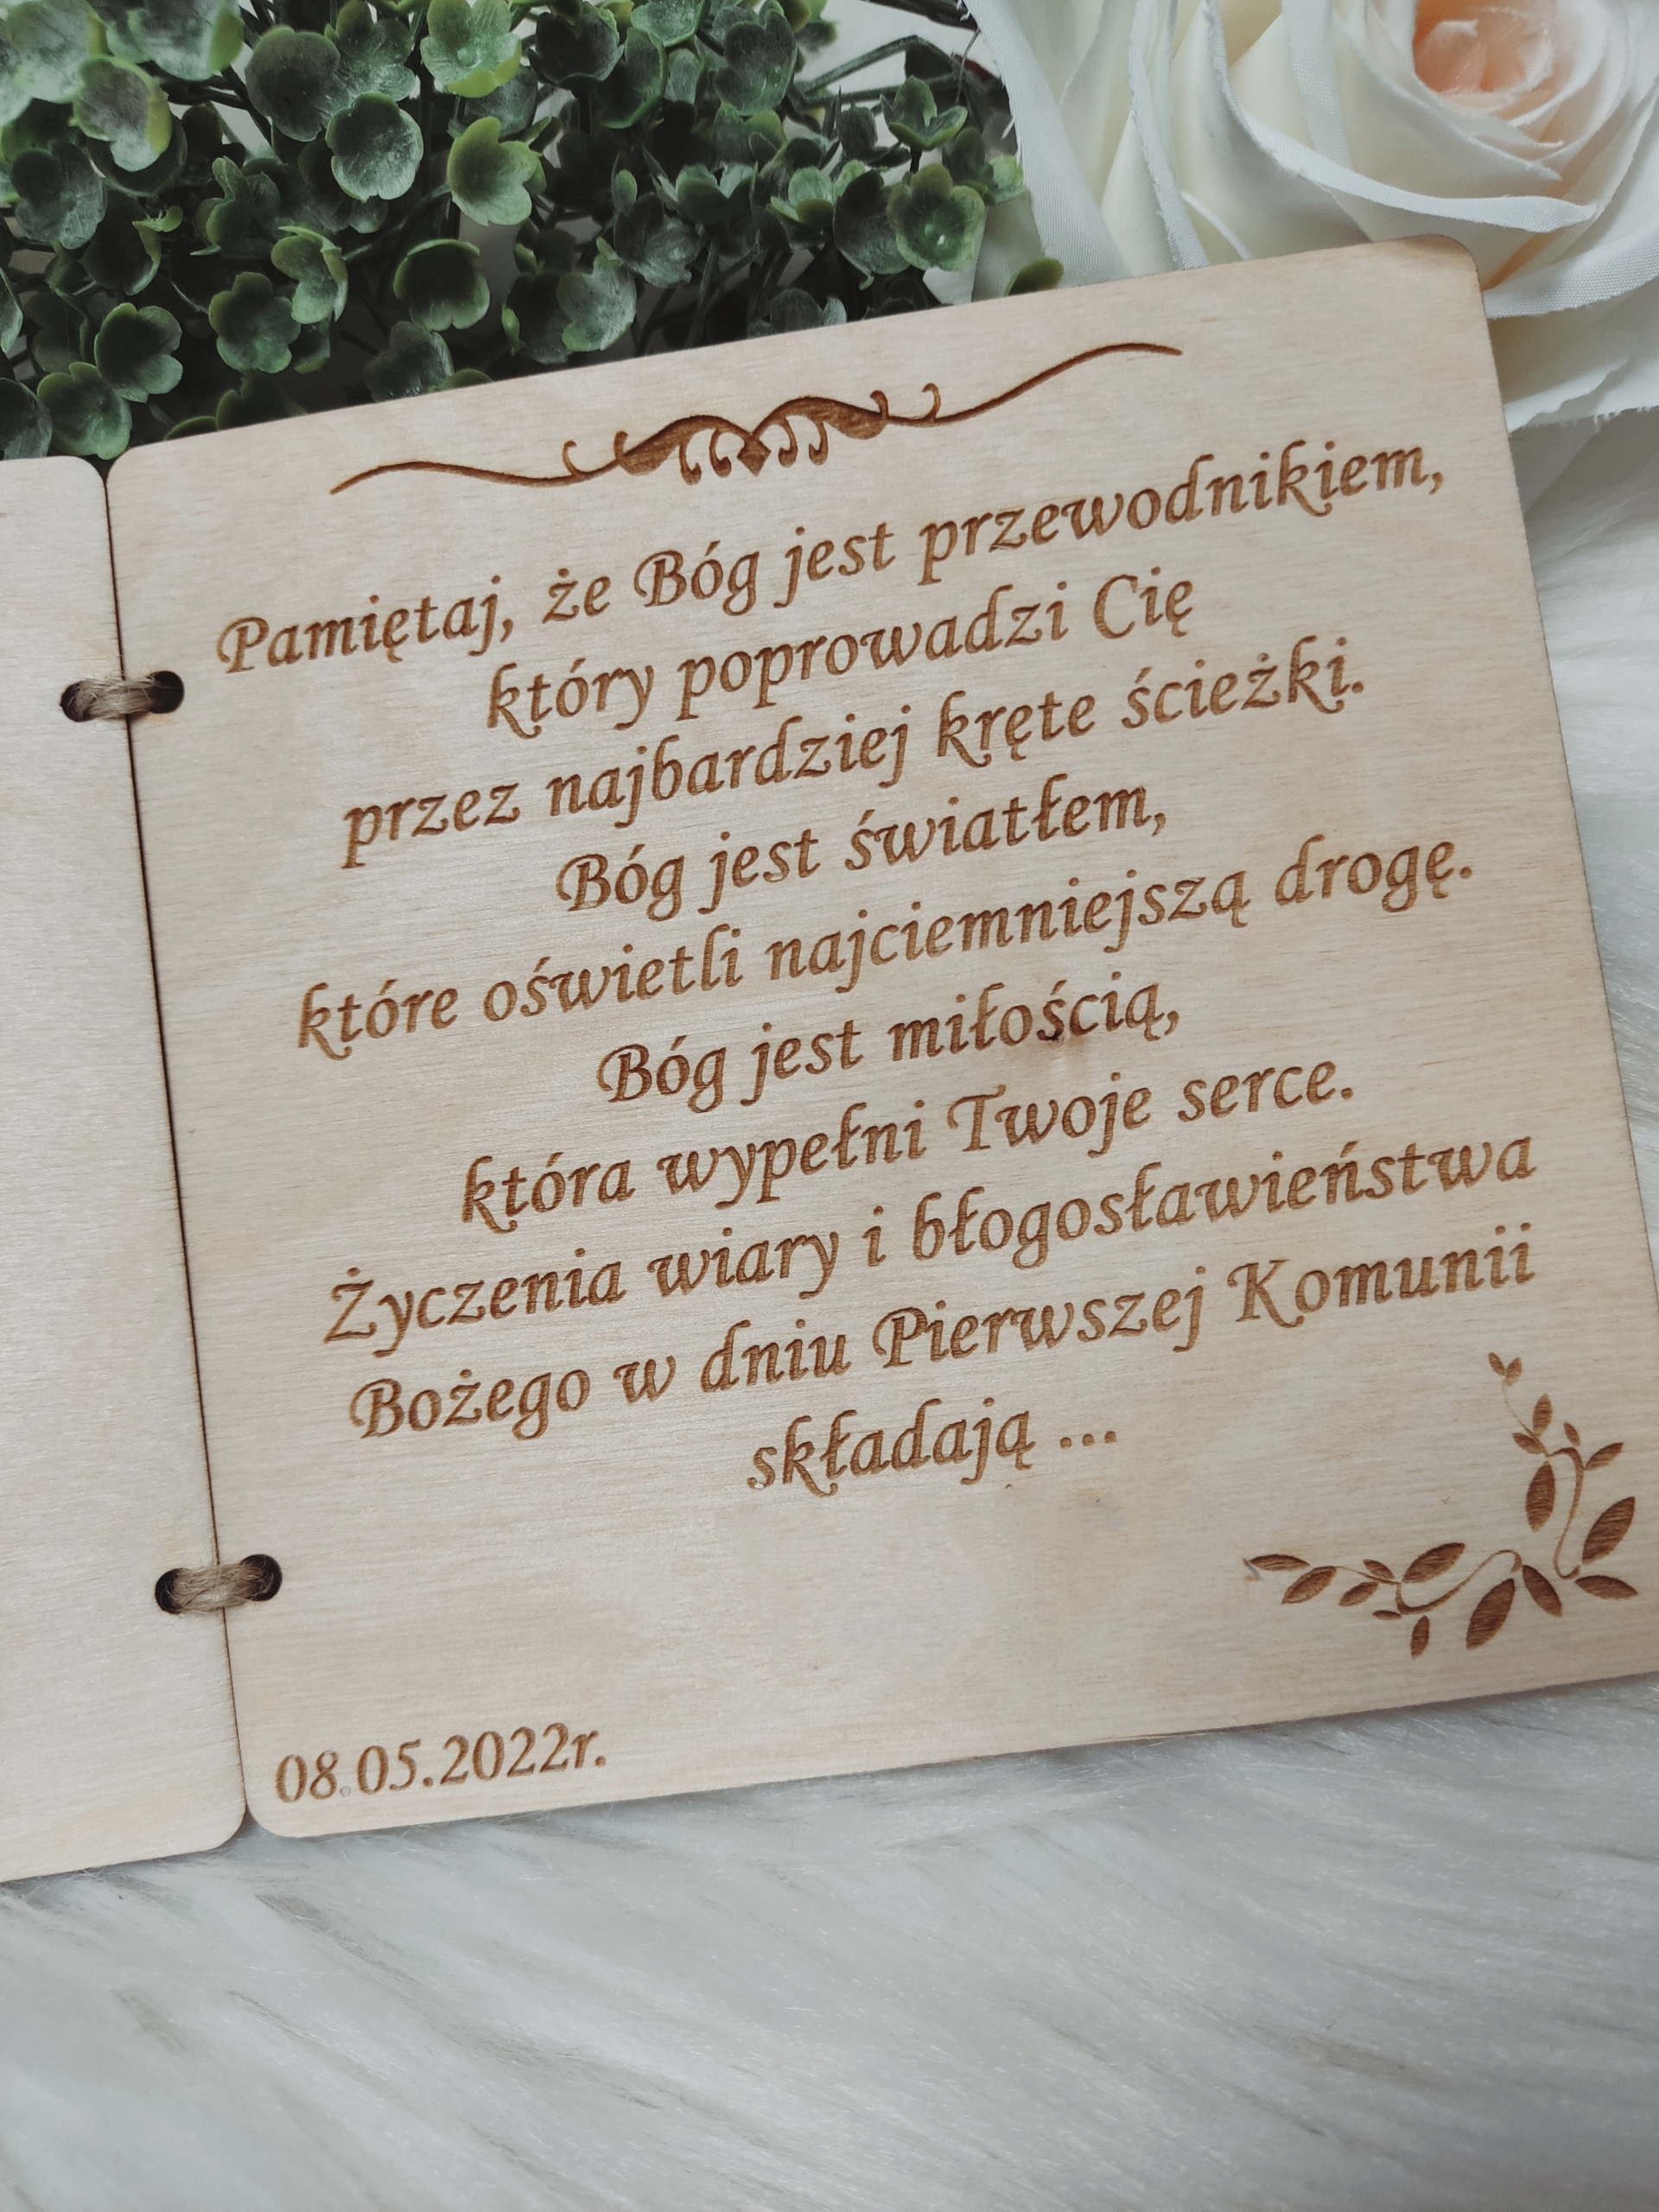 Pamiętaj, że Bóg jest przewodnikiem,
który poprowadzi Cię
przez najbardziej kręte ścieżki.
Bóg jest światłem,
które oświetli najciemniejszą drogę.
Bóg jest miłością,
która wypełni Twoje serce.
Życzenia wiary i błogosławieństwa
Bożego w dniu Pierwszej Komunii
składają ...
08.05.2022r.